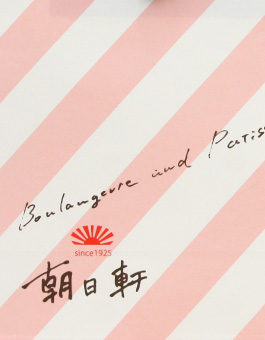 Boulangerie and Patis
since1925
朝日軒